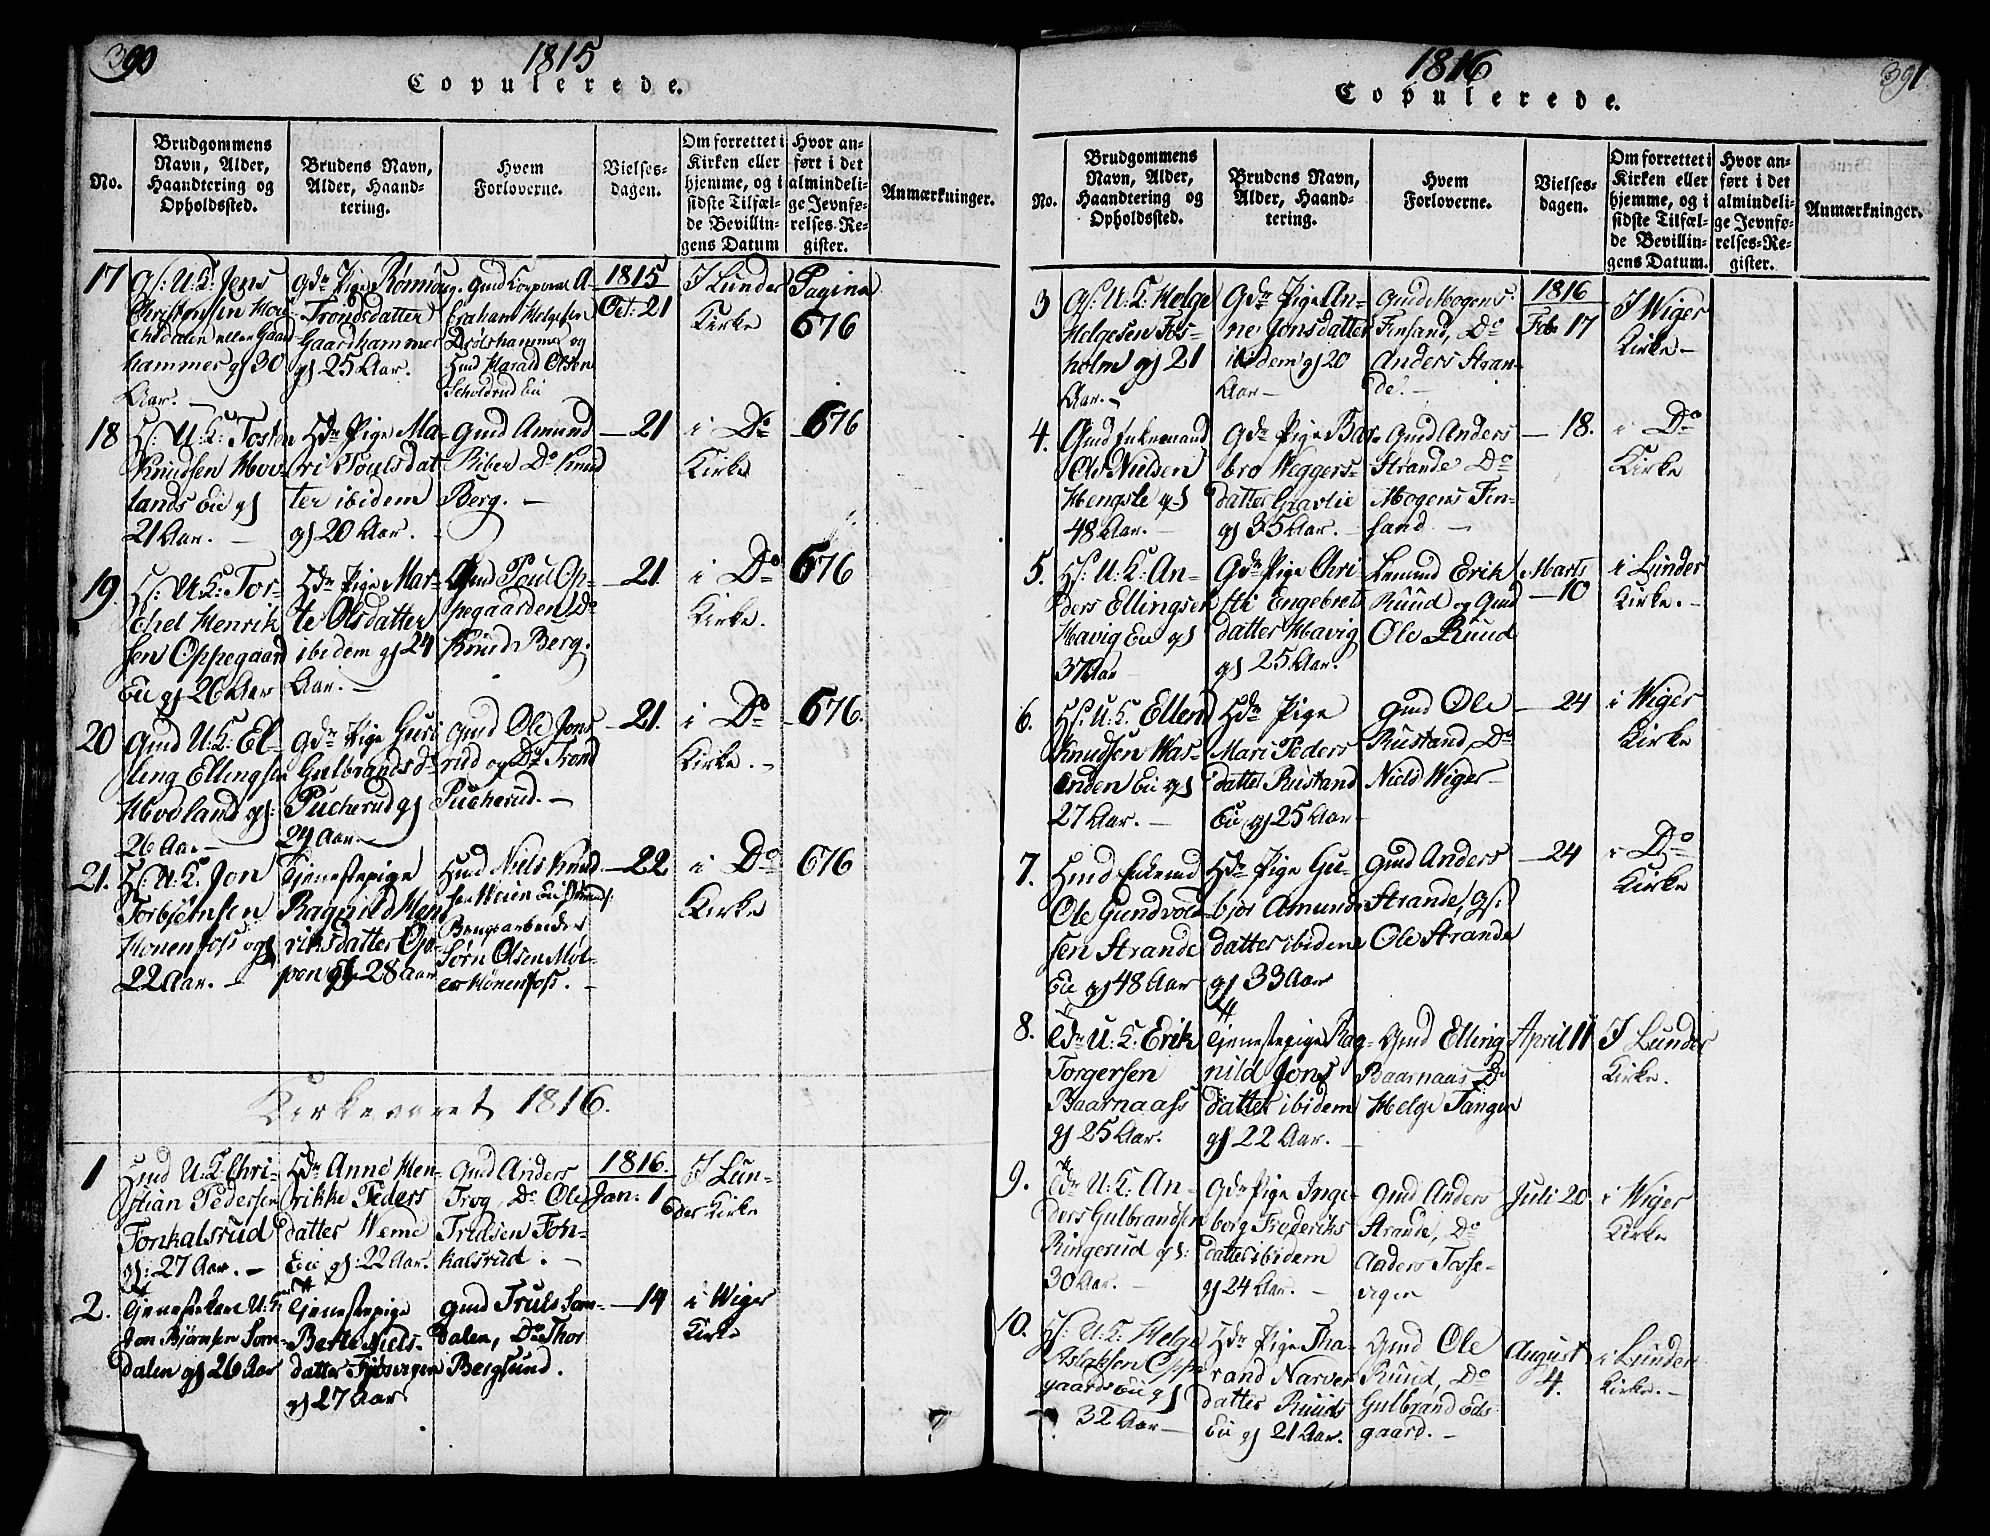 390
1815
Copulerede.
No.
Brudgommens
Navn, Alder,
Haandtering og
Opholdssted.
Brudens Navn,
Alder, Haand-
tering.
Hvem
Forloverne.
Vielses-
dagen.
Om forrettet i
Kirken eller
hjemme, og i
sidste Tilfæl-
de Bevillin-
gens Datum
Hvor an-
ført i det
almindeli-
ge Jevnfø-
relses-Re-
gister.
Anmærkninger.
17
Gs: U: K: Jens
Christensen
hammer gl 30
Aar.
Gdr Pige
Trondsdatter
Gaardhammer
gl 25 Aar.
Gmd Corporal A-
braham Helgesen
og
Hmd Harald Olsen
Eie
1815
Oct: 21
I Lunder
Kirke
Pagina
676
18
Hs: U: K: Tosten
Knudsen Hov-
lands Eie gl
21 Aar.
Hdr Pige Ma-
ri Poulsdat-
ter ibidem
gl 20 Aar.
Gmd Amund
Riber Do Knud
Berg.
21
i Do
Kirke
676
19.
Hs: U: K: Tor-
chel Henrik-
sen Oppegaard
Eie gl 26 Aar
Hdr Pige Mar-
te Olsdatter
ibidem gl 24
Aar.
Gmd Poul Op-
pegaarden Do
Knud Berg.
21
i Do
Kirke.
676
20
Gmd U: K: El-
ling Ellingsen
Hovland gl:
26 Aar.
Gdr Pige Guri
Gulbrandsdr
Pucherud gl
29 Aar.
Gmd Ole Jons-
rud og Do Trond
Pucherud.
21.
i Do
Kirke.
676.
21.
Hs: U: K: Jon
Torbjørnsen
Hønenfoss gl
22 Aar.
Tjenestepige
Ragnild Hen-
riksdatter Op-
pen gl 28 Aar
Hmd Niels Knud-
sen Veien Eie
Brugsarbeider
Sørn Olsen Møl-
ler Hønenfoss.
22
i Do
Kirke
676
Kirkeaaret 1816.
1
Hmd U: K: Chri-
stian Pedersen
Fonkalsrud
gl: 27 Aar.
Hdr Anne Hen-
rikke Peders-
datter Weme
Eie gl: 22 Aar.
Gmd Anders
Trøg, Do Ole
Tridsen Fon-
kalsrud.
1816.
Jan: 1
I Lun-
der Kirke
2.
Tjenestekarl U: K:
Jon Bjørnsen Søm-
dalen gl 26 Aar
Tjenestepige
Berte Niels-
datter
gl 27 Aar
Gmd Truls Søm-
dalen, Do Thor
Bergsund.
14
i Wiger
Kirke
391
1816
Copulerede.
No.
Brudgommens
Navn, Alder,
Haandtering og
Opholdssted.
Brudens Navn,
Alder, Haand-
tering.
Hvem
Forloverne.
Vielses-
dagen.
Om forrettet i
Kirken eller
hjemme, og i
sidste Tilfæl-
de Bevillin-
gens Datum.
Hvor an-
ført i det
almindeli-
ge Jevnfø-
relses-Re-
gister.
Anmærkninger.
3
Gs: U: K: Helge
Helgesen Fos-
holm gl 21
Aar.
Gdr Pige An-
ne Jonsdatter
ibidem gl 20
Aar
Gmd Mogens
Finsand, Do
Anders Stran-
de.
1816
Feb: 17
I Wiger
Kirke
4.
Gmd Enkemand
Ole Nielsen
Hengsle gl
48 Aar.
Gdr Pige Bar-
bro Weggers-
datter Gravlie
gl 35 Aar.
Gmd Anders
Strande Do
Mogens Fin-
sand.
18.
i Do
Kirke
5.
Hs: U: K: An-
ders Ellingsen
Havig Eie gl
37 Aar
Gdr Pige Chri-
sti Engebrets-
datter Havig
gl 25 Aar.
Lensmd Erik
Ruud og Gmd
Ole Ruud
Marts
10
i Lunder
Kirke.
6.
Hs: U: K: Ellen
Knudsen Was-
enden Eie gl
27 Aar.
Hdr Pige
Mari Peders-
datter Rustand
Eie gl 25 Aar
Gmd Ole
Rustand, Do
Niels Wiger
24
i Wiger
Kirke
7.
Hmd Enkemd
Ole Gundvold-
sen Strande
Eie gl 48 Aar
Hdr Pige Gu-
bjør Amunds-
datter ibidem
gl 33 Aar
Gmd Anders
Strande, Gs:
Ole Strande
24
i Do
Kirke
8.
U: K: Erik
Torgersen
Baarnaass
gl 25 Aar.
Tjenestepige Rag-
nild Jons-
datter ibidem
gl 22 Aar.
Gmd Elling
Baarnaas, Do
Helge Tangen
April 11
I Lunder
Kirke.
9.
U: K: An-
ders Gulbrandsen
Ringerud gl:
30 Aar.
Gdr Pige Inge-
borg Frederiks-
datter ibidem
gl 24 Aar.
Gmd Anders
Strande, Do
Anders Tosse-
vigen
Juli 20.
i Wiger
Kirke
10.
Hs: U: K: Helge
Aslaksen Oppe-
gaards Eie gl
32 Aar
Hdr Pige Tha-
rand Narves-
datter Ruuds
Eie gl 21 Aar.
Gmd Ole
Ruud, Do
Gulbrand Eds-
gaard.
August
4.
i Lunder
Kirke.